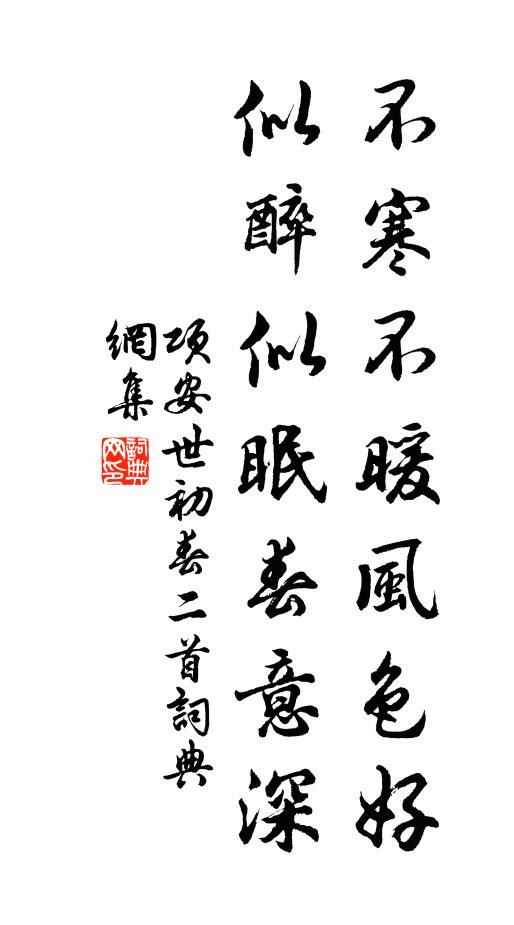 不寒不暖風色好
似醉似眠春意深
項安世初春二首詞典
網集
詞典
网印